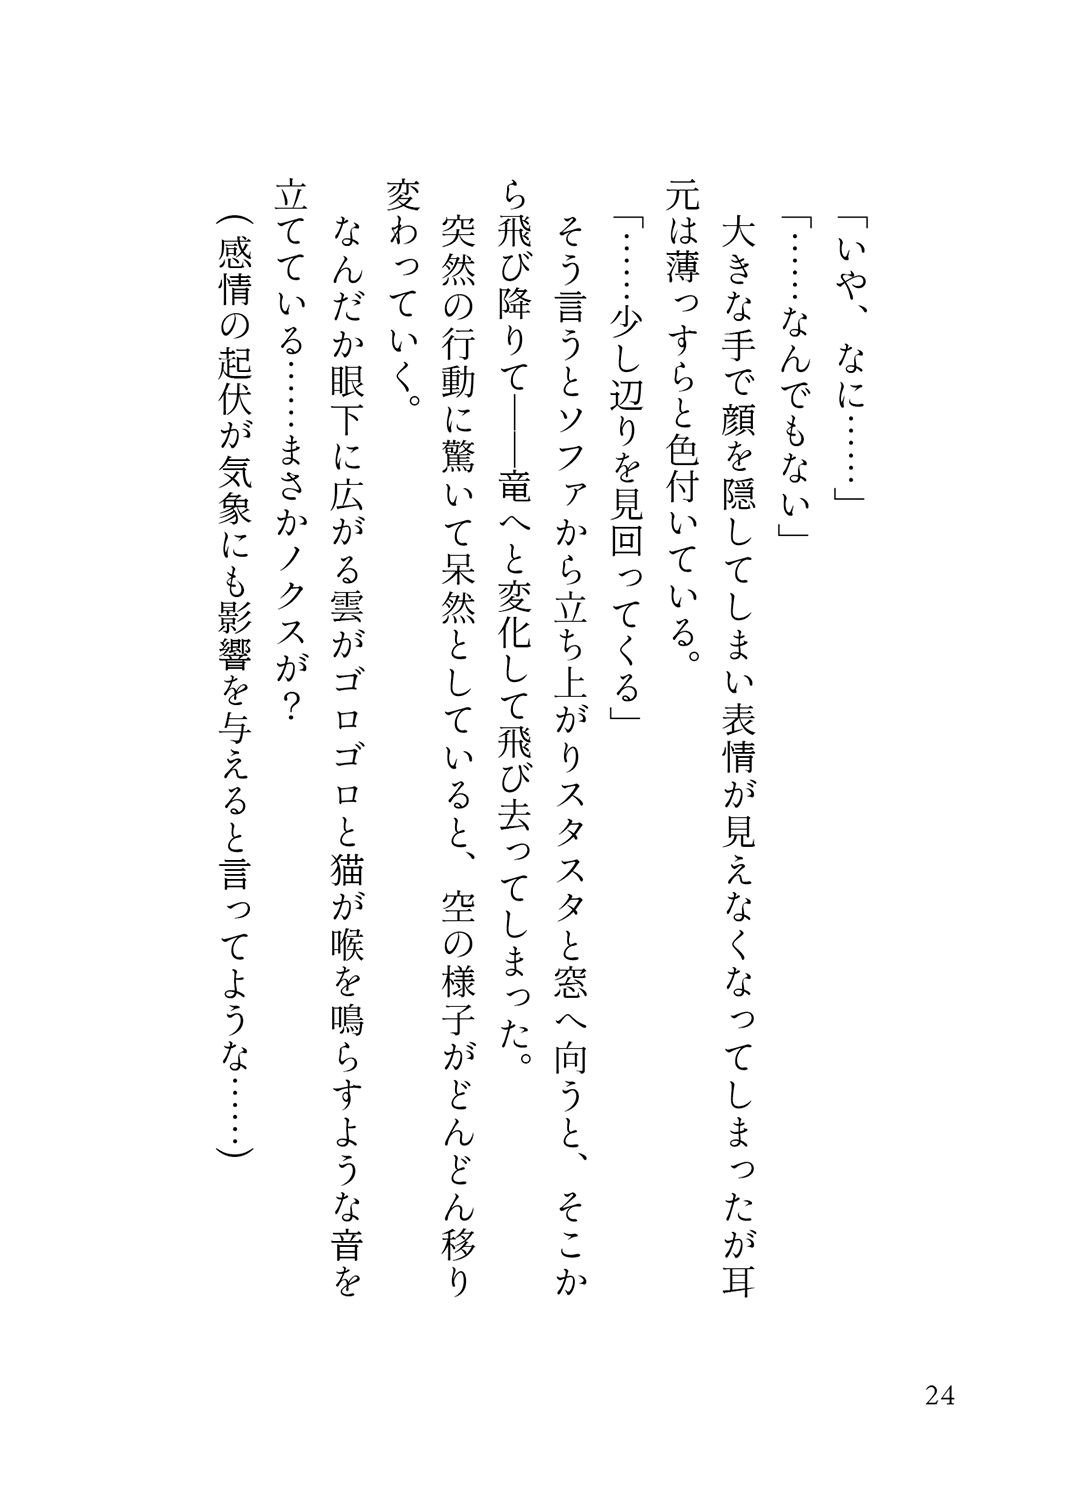 「いや、なに……」
「……なんでもない」
大きな手で顔を隠してしまい表情が見えなくなってしまったが耳
元は薄っすらと色付いている。
「……少し辺りを見回ってくる」
そう言うとソファから立ち上がりスタスタと窓へ向うと、そこか
ら飛び降りて――竜へと変化して飛び去ってしまった。
突然の行動に驚いて呆然としていると、空の様子がどんどん移り
変わっていく。
なんだか眼下に広がる雲がゴロゴロと猫が喉を鳴らすような音を
立てている……まさかノクスが？
（感情の起伏が気象にも影響を与えると言ってような……）
24